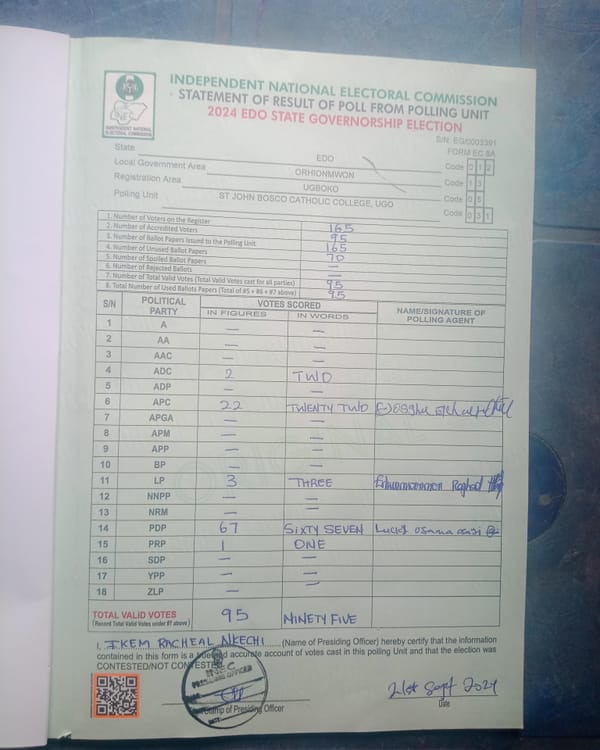 INDEPENDENT NATIONAL ELECTORAL COMMISSION
INEC
INDEPENDENT NATIONAL ELECTORAL COMMISSION
STATEMENT OF RESULT OF POLL FROM POLLING UNIT
2024 EDO STATE GOVERNORSHIP ELECTION
S/N: EG/0003391
FORM EC 8A
State EDO Code 0 1 2
Local Government Area ORHIONMWON Code 1 3
Registration Area UGBOKO Code 0 5
Polling Unit ST JOHN BOSCO CATHOLIC COLLEGE, UGO Code 0 3 1
1. Number of Voters on the Register 165
2. Number of Accredited Voters 95
3. Number of Ballot Papers Issued to the Polling Unit 165
4. Number of Unused Ballot Papers 70
5. Number of Spoiled Ballot Papers —
6. Number of Rejected Ballots —
7. Number of Total Valid Votes (Total Valid Votes cast for all parties) 95
8. Total Number of Used Ballots Papers (Total of #5 + #6 + #7 above) 95
S/N POLITICAL PARTY VOTES SCORED NAME/SIGNATURE OF POLLING AGENT
IN FIGURES IN WORDS
1 A — —
2 AA — —
3 AAC — —
4 ADC 2 TWO
5 ADP — —
6 APC 22 TWENTY TWO
7 APGA — —
8 APM — —
9 APP — —
10 BP — —
11 LP 3 THREE Raphael
12 NNPP — —
13 NRM — —
14 PDP 67 SIXTY SEVEN Lucky
15 PRP 1 ONE
16 SDP — —
17 YPP — —
18 ZLP — —
TOTAL VALID VOTES 95 NINETY FIVE
(Record Total Valid Votes under #7 above)
I, IKEM RACHEAL NKECHI (Name of Presiding Officer) hereby certify that the information
contained in this form is a accurate account of votes cast in this polling Unit and that the election was
CONTESTED/NOT CONTESTED
INEC
PRESIDING OFFICER
Stamp of Presiding Officer
21st Sept 2024
Date